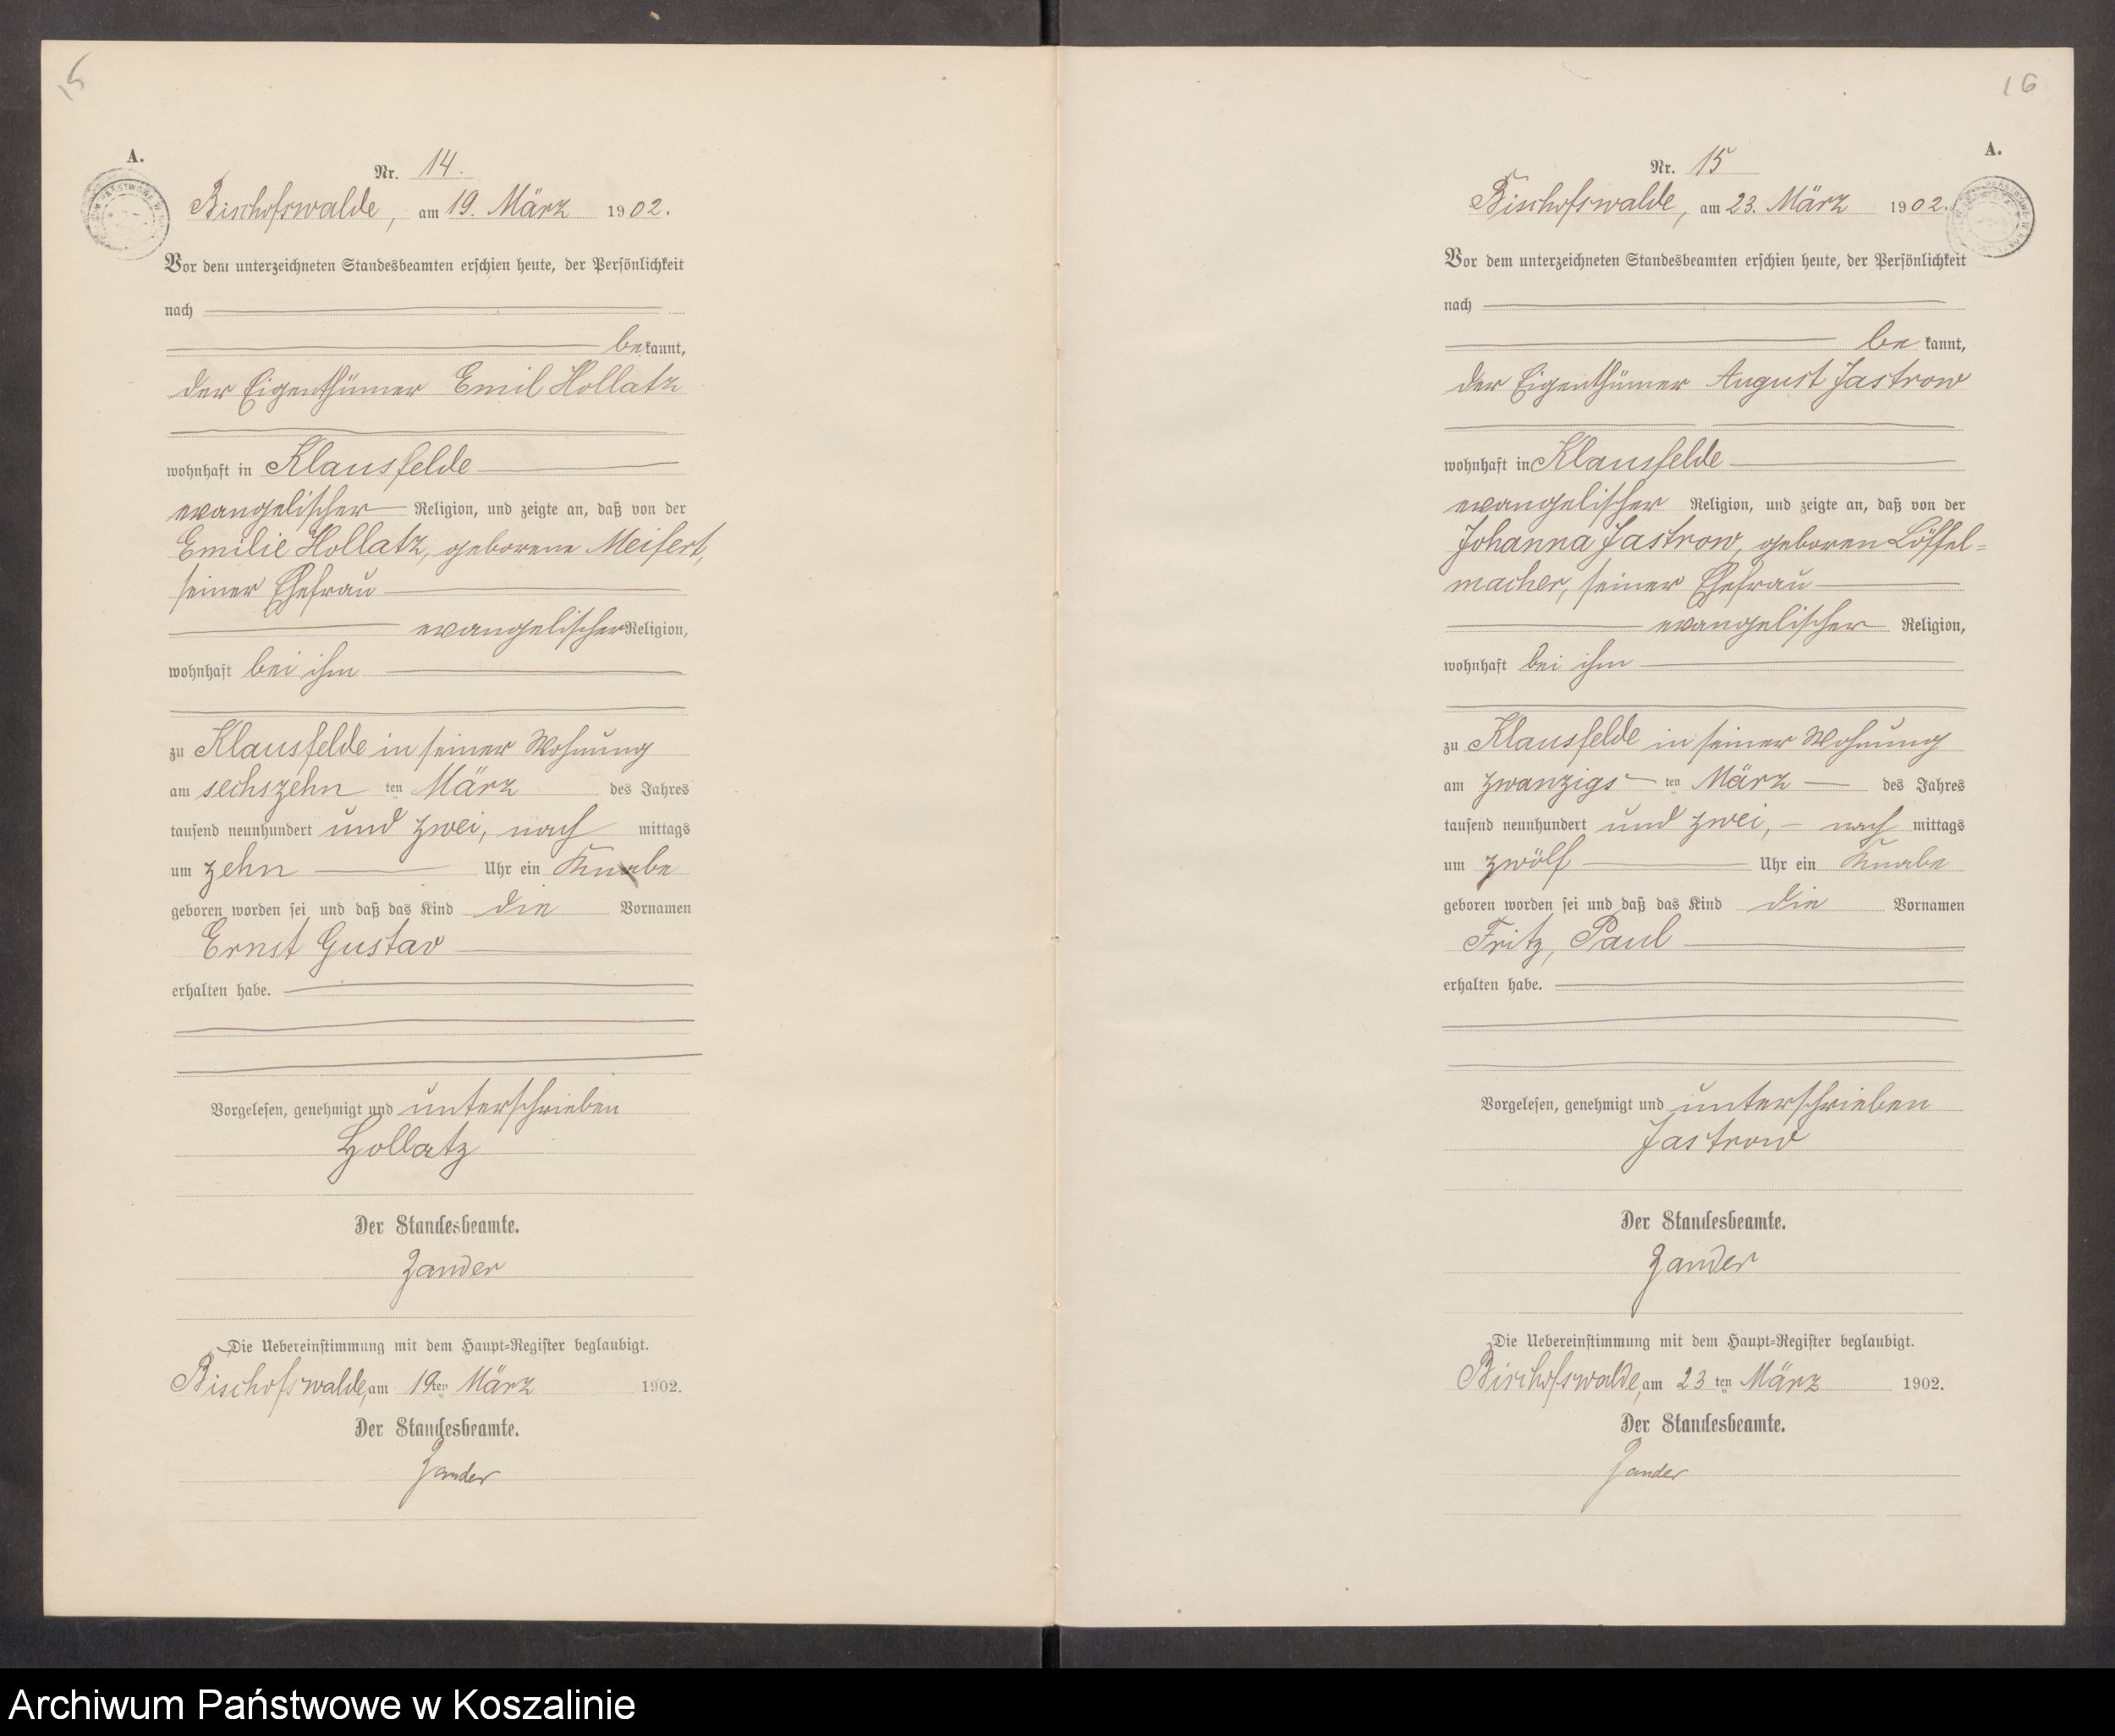 15
A.
Nr. 14.
Bischofswalde, am 19. März 1902.
Vor dem unterzeichneten Standesbeamten erschien heute, der Persönlichkeit
nach
bekannt,
der Eigenthümer Emil Hollatz
wohnhaft in Klausfelde
evangelischer Religion, und zeigte an, daß von der
Emilie Hollatz, geborene Meifert,
seiner Ehefrau
evangelischer Religion,
wohnhaft bei ihm
zu Klausfelde in seiner Wohnung
am sechszehn ten März des Jahres
tausend neunhundert und zwei, nach mittags
um zehn Uhr ein Knabe
geboren worden sei und daß das Kind die Vornamen
Ernst Gustav
erhalten habe.
Vorgelesen, genehmigt und unterschrieben
Hollatz
Der Standesbeamte.
Zander
Die Uebereinstimmung mit dem Haupt=Register beglaubigt.
Bischofswalde, am 19ten März 1902.
Der Standesbeamte.
Zander
16
A.
Nr. 15
Bischofswalde, am 23. März 1902.
Vor dem unterzeichneten Standesbeamten erschien heute, der Persönlichkeit
nach
be kannt,
der Eigenthümer August Jastrow
wohnhaft in Klausfelde
evangelischer Religion, und zeigte an, daß von der
Johanna Jastrow, geboren Löffel=
macher, seiner Ehefrau
evangelischer Religion,
wohnhaft bei ihm
zu Klausfelde in seiner Wohnung
am zwanzigs ten März des Jahres
tausend neunhundert und zwei, nach mittags
um zwölf Uhr ein Knabe
geboren worden sei und daß das Kind die Vornamen
Fritz, Paul
erhalten habe.
Vorgelesen, genehmigt und unterschrieben
Jastrow
Der Standesbeamte.
Zander
Die Uebereinstimmung mit dem Haupt=Register beglaubigt.
Bischofswalde, am 23 ten März 1902.
Der Standesbeamte.
Zander
Archiwum Państwowe w Koszalinie